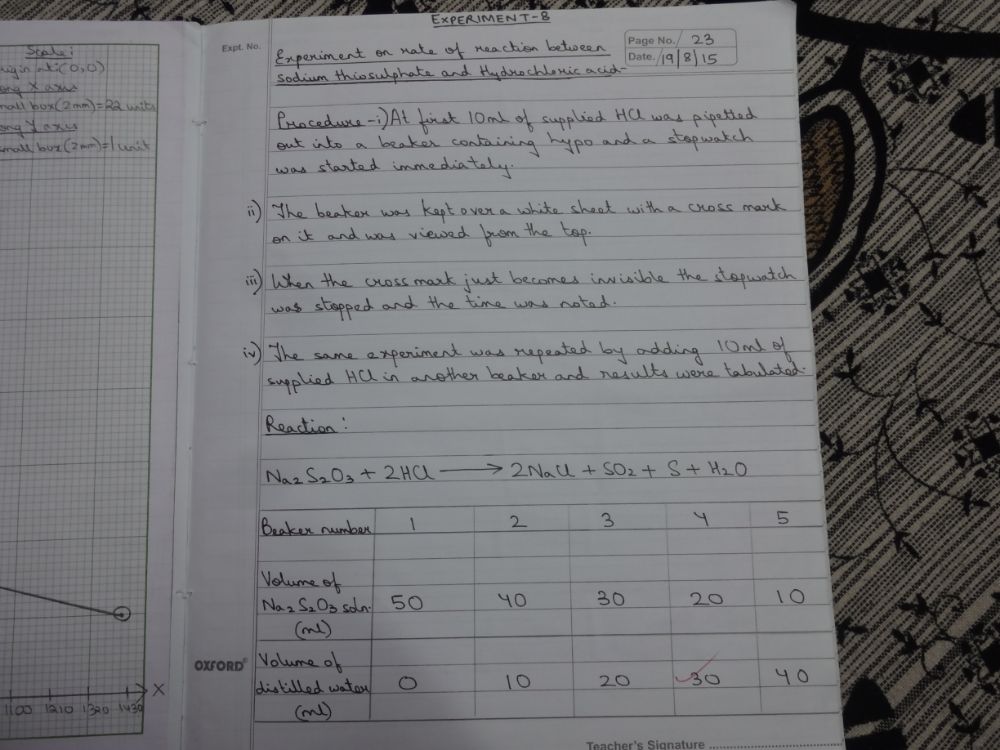 Scale:
rigin at:(0,0)
ong X axis
mall box(2mm)=22 units
ong Y axis
mall box(2mm)=1 unit
1100 1210 1320 1430
X
EXPERIMENT-8
Expt. No.
Page No. 23
Date. 19/8/15
Experiment on rate of reaction between
sodium thiosulphate and Hydrochloric acid-
Procedure-i) At first 10ml of supplied HCl was pipetted
out into a beaker containing hypo and a stopwatch
was started immediately.
ii) The beaker was kept over a white sheet with a cross mark
on it and was viewed from the top.
iii) When the cross mark just becomes invisible the stopwatch
was stopped and the time was noted.
iv) The same experiment was repeated by adding 10ml of
supplied HCl in another beaker and results were tabulated.
Reaction:
Na2S2O3 + 2HCl → 2NaCl + SO2 + S + H2O
Beaker number 1 2 3 4 5
Volume of
Na2S2O3 soln. 50 40 30 20 10
(ml)
Volume of
distilled water 0 10 20 30 40
(ml)
OXFORD®
Teacher's Signature